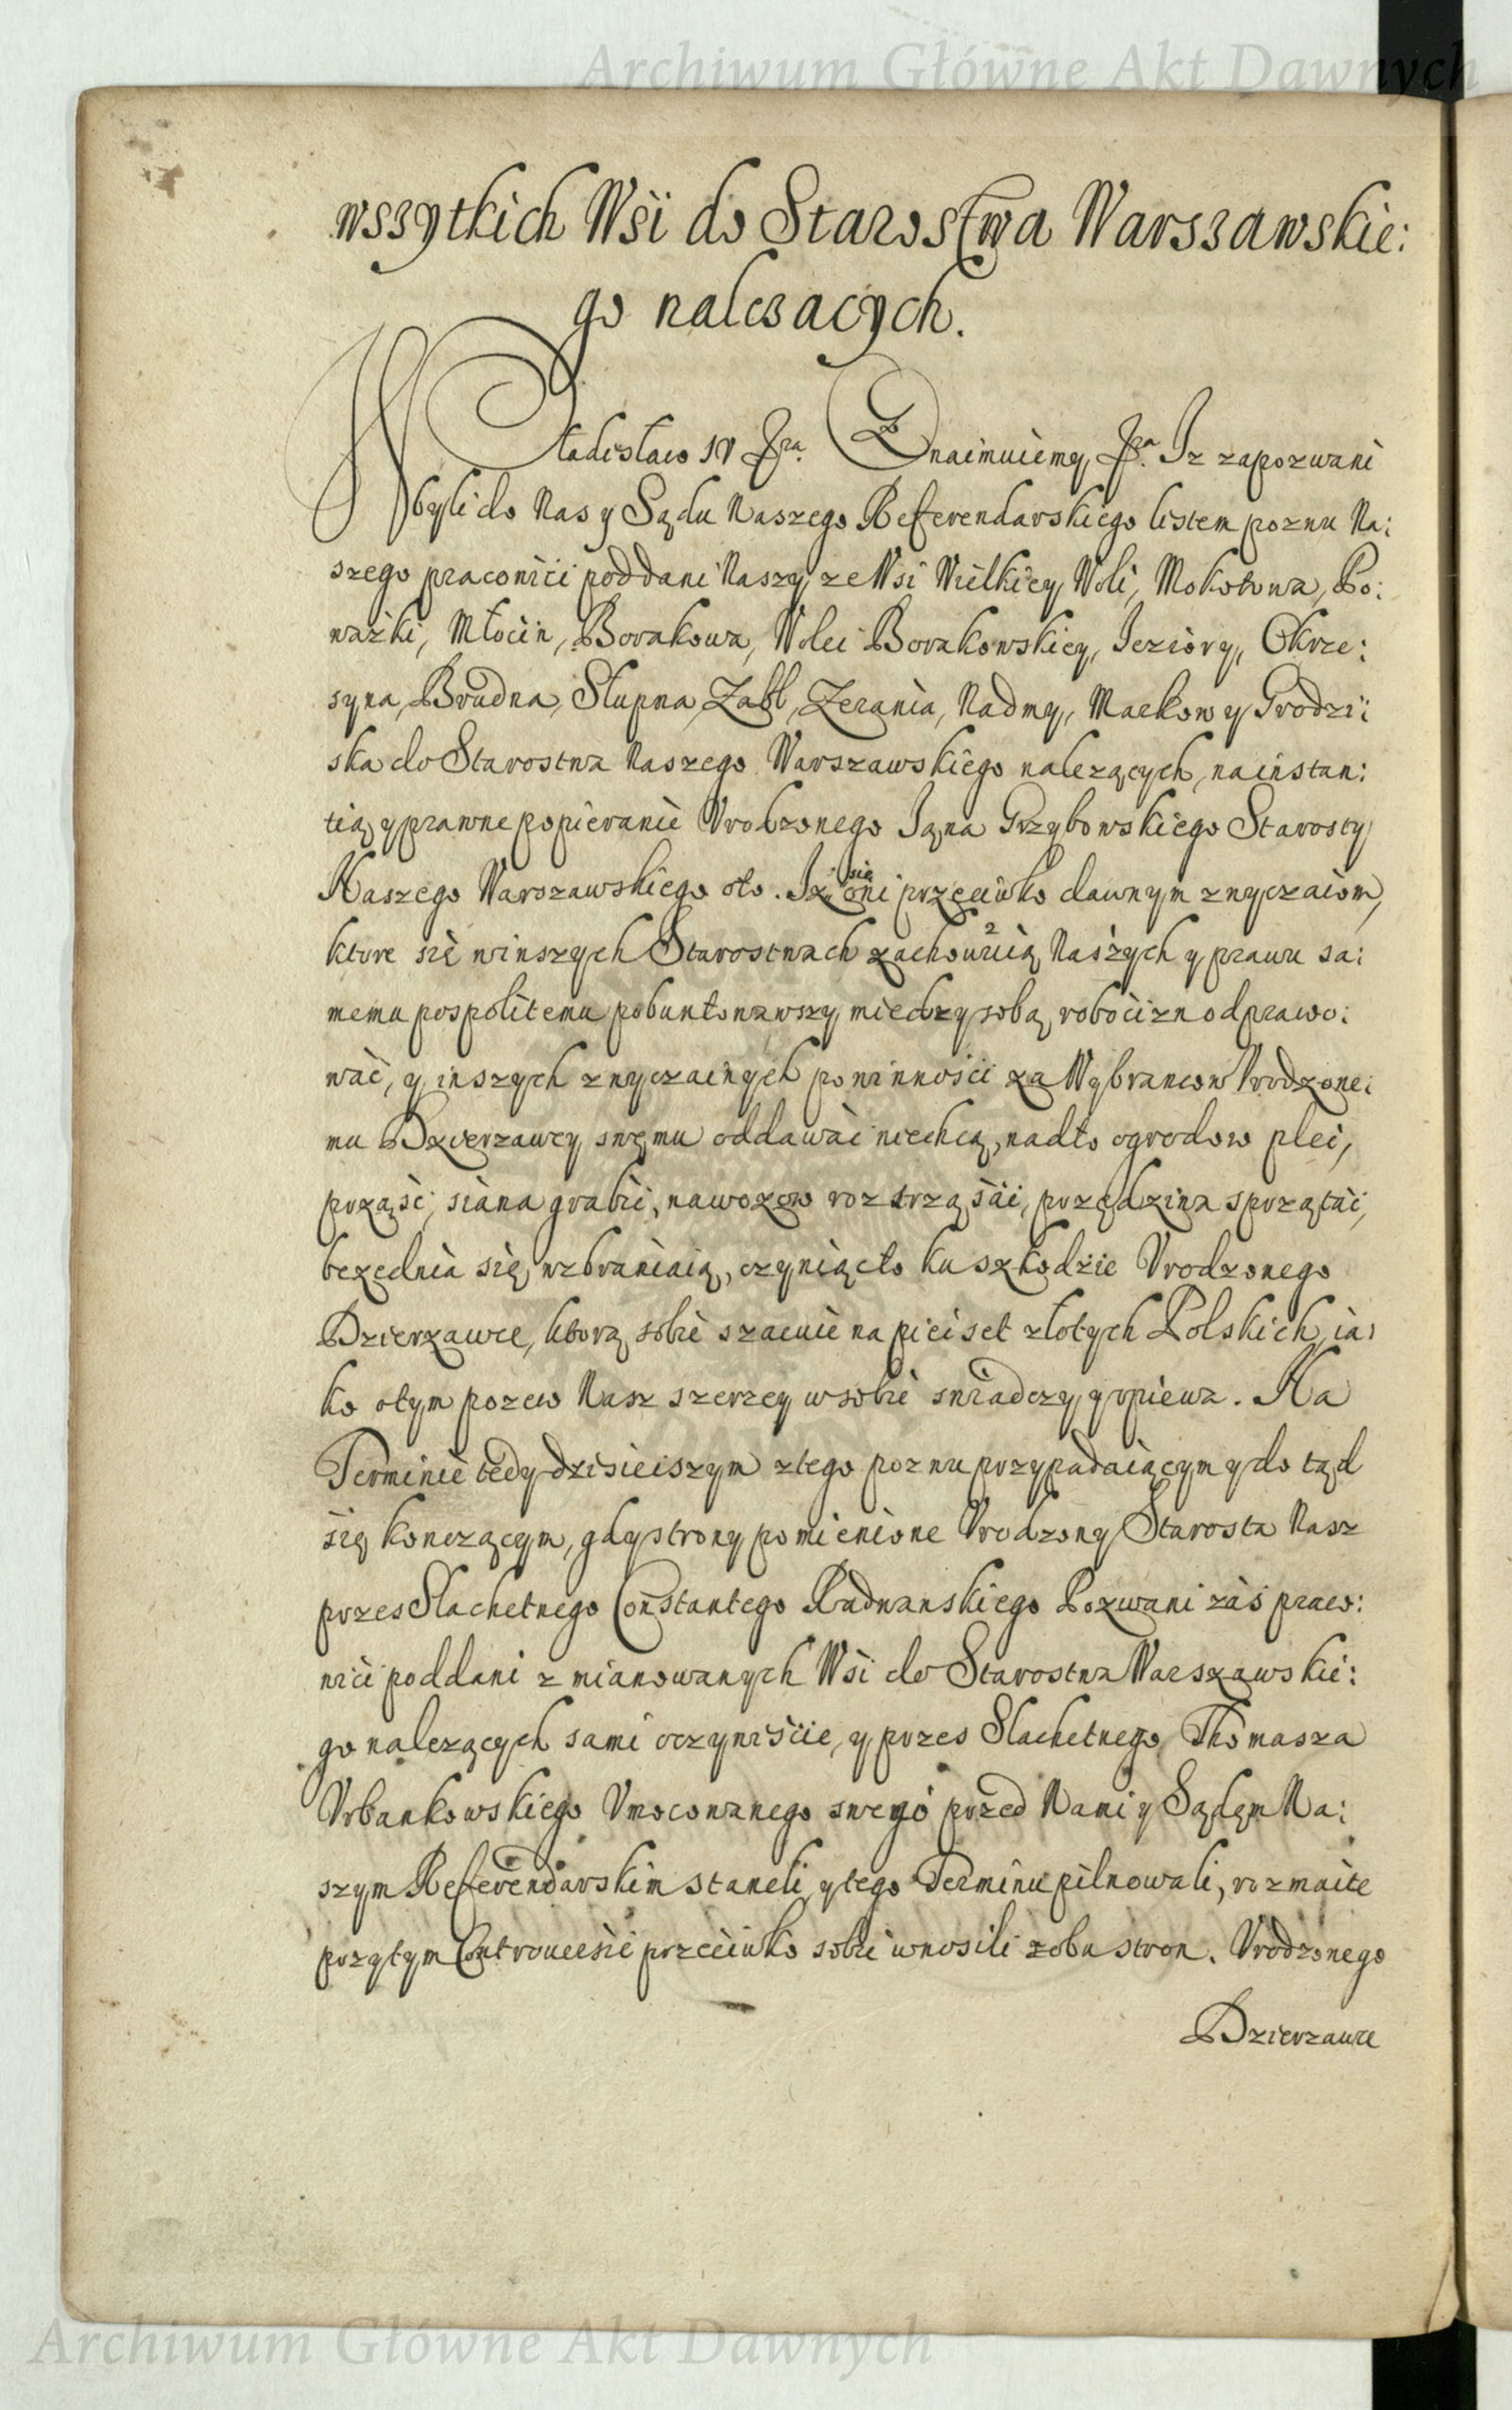 Archiwum Główne Akt Dawnych
wszytkich Wsi do Starostwa Warszawskie:
go nalezacych.
Władisław IV Jra. Znaimuiemy, Jra. Iz zapozwani
byli do Nas y Sądu Naszego Referendarskiego listem poznu Na:
szego pracowici poddani Naszy, ze Wsi Wielkiey Woli, Mokotowa, Po:
wazki, Młocin, Borakowa, Wolei Borakowskiey, Ieziory, Okrze:
syna, Brudna, Słupna, Ząbl, Zerania, Nadmy, Markow y Grodzi:
ska do Starostwa Naszego Warszawskiego nalezących, na instan:
tią y prawne popieranie Vrodzonego Iana Grzybowskiego Starosty
Naszego Warszawskiego oto. Iz się oni przeciwko dawnym zwyczaiom,
ktore się w inszych Starostwach zachowuią Naszych y prawu sa:
memu pospolitemu pobuntowawszy między sobą, robocizn odprawo:
wać, y inszych zwyczainych powinności za Wybrancow Vrodzone:
mu Dzierzawcy swemu oddawać niechcą, nadto ogrodow pleć,
prząść, siana grabić, nawozow roztrząsać, przędziwa sprzątać,
bezednia się wzbraniaią, czyniąc to ku szkodzie Vrodzonego
Dzierzawce, ktorą sobie szacuie na pieiset złotych Polskich, ia:
ko o tym pozew Nasz szerzey w sobie swiadczy y opiewa. Na
Terminie tedy dzisieiszym z tego poznu przypadaiącym y do tąd
się konczącym, gdy strony pomienione Vrodzony Starosta Nasz
przes Slachetnego Constantego Radwanskiego Pozwani zaś praco:
wici poddani z mianowanych Wsi do Starostwa Warszawskie:
go nalezących sami oczywiście, y przes Slachetnego Thomasza
Vrbankowskiego Vmocowanego swego przed Nami y Sądem Na:
szym Referendarskim staneli, y tego Terminu pilnowali, rozmaite
przytym Controuersie przeciwko sobie wnosili z obu stron. Vrodzonego
Dzierzawce
Archiwum Główne Akt Dawnych